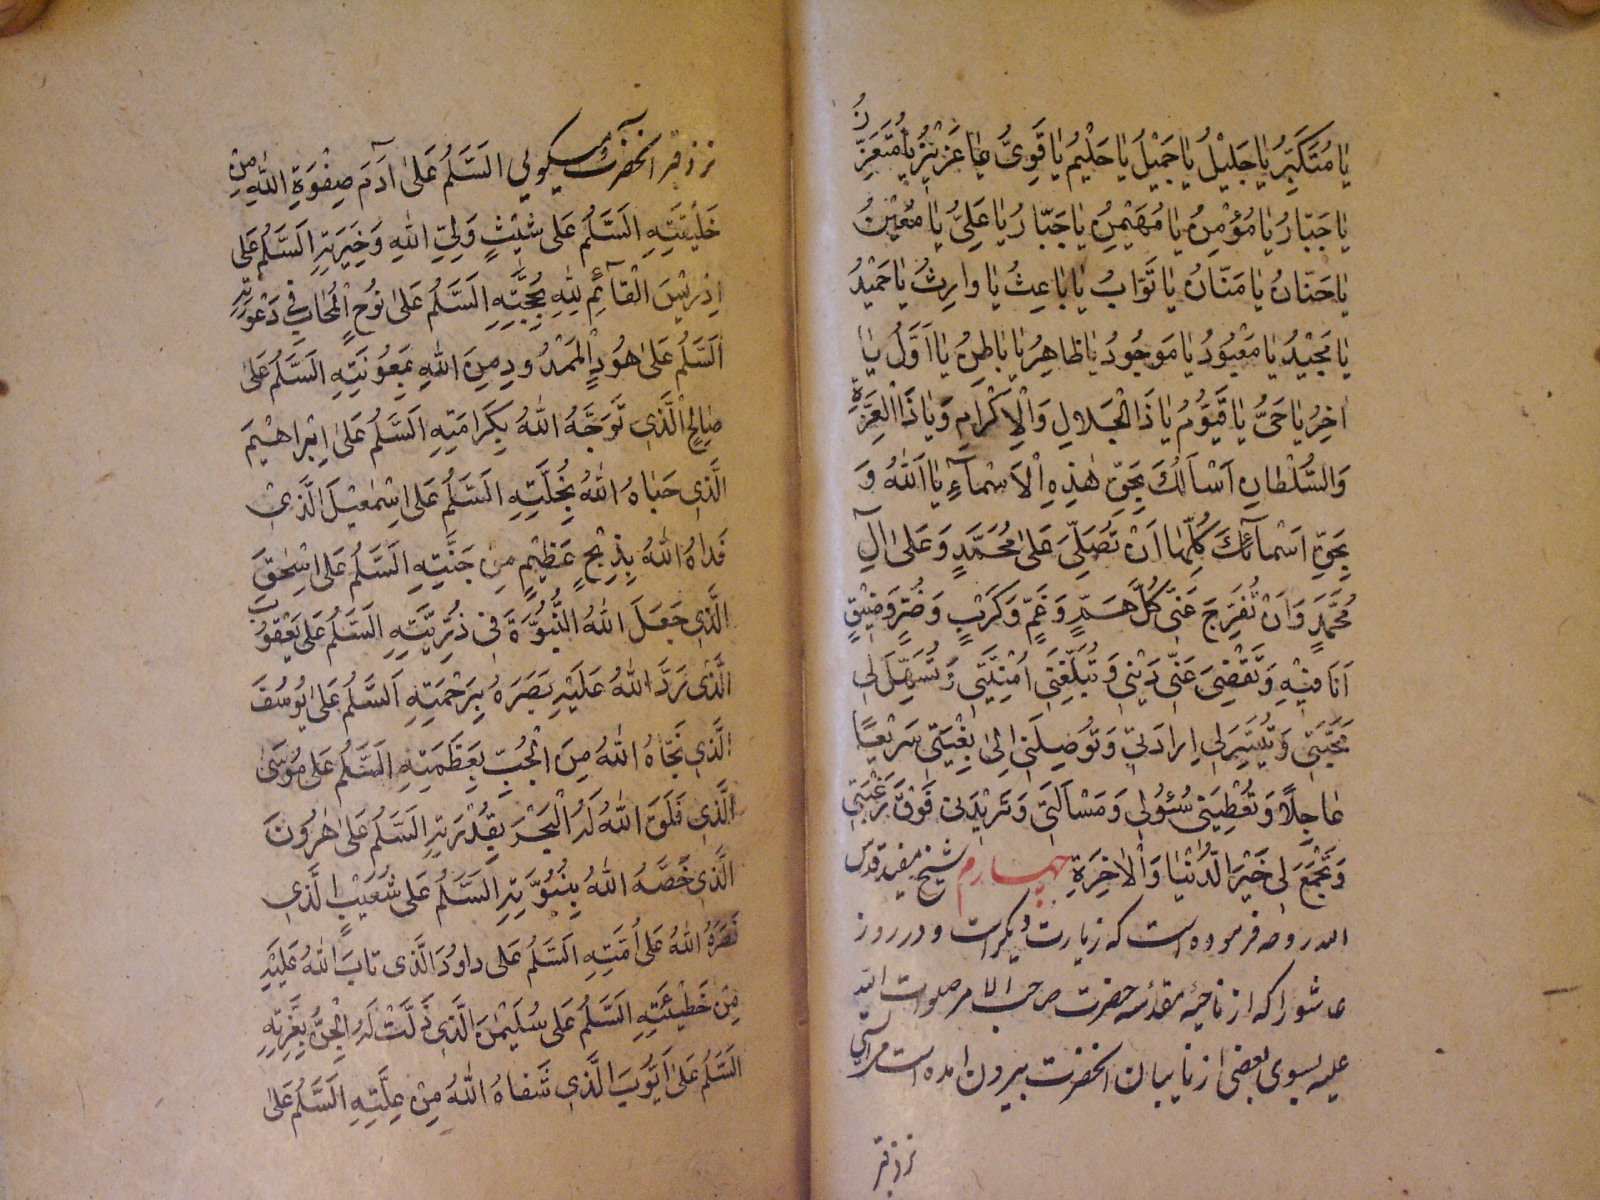 يا مُتَكَبِّرُ يا جَليلُ يا جَميلُ يا حَليمُ يا قَوِىُّ يا عَزيزُ يا مُتَعَزِّزُ
يا جَبّارُ يا مُؤْمِنُ يا مُهَيْمِنُ يا جَبّارُ يا عَلِىُّ يا مُعينُ
يا حَنّانُ يا مَنّانُ يا تَوّابُ يا باعِثُ يا وارِثُ يا حَميدُ
يا مَجيدُ يا مَعْبُودُ يا مَوجُودُ يا ظاهِرُ يا باطِنُ يا اَوَّلُ يا
اخِرُ يا حَىُّ يا قَيُّومُ يا ذَا الْجَلالِ وَالْاِكْرامِ وَيا ذَا الْعِزَّةِ
وَالسُّلْطانِ اَسْاَلُكَ بِحَقِّ هٰذِهِ الْاَسْمآءِ يا اَللّٰهُ وَ
بِحَقِّ اَسْمآئِكَ كُلِّها اَنْ تُصَلِّىَ عَلىٰ مُحَمَّدٍ وَعَلىٰ الِ
مُحَمَّدٍ وَاَنْ تُفَرِّجَ عَنّى كُلَّ هَمٍّ وَغَمٍّ وَكَرْبٍ وَضُرٍّ وَضيقٍ
اَنَا فيهِ وَتَقْضِىَ عَنّى دَيْنى وَتُبَلِّغَنى اُمْنِيَّتى وَتُسَهِّلَ لى
مَحَبَّتى وَتُيَسِّرَ لى اِرادَتى وَتُوصِلَنى اِلىٰ بِغْيَتى سَريعًا
عاجِلًا وَتُعْطِيَنى سُؤْلى وَمَسْاَلَتى وَتَزيدَنى فَوْقَ رَغْبَتى
وَتَجْمَعَ لى خَيْرَ الدُّنْيا وَالْاخِرَةِ چهارم شيخ مفيد قدس
الله روحه فرموده است كه زيارت ديكر است و در روز
عاشورا كه از ناحيه مقدسه حضرت صاحب الامر صلوات الله
عليه بسوى بعضى از نايبان انحضرت بيرون امده است
نزد قبر
نزد قبر انحضرت ميكوئى اَلسَّلٰمُ عَلىٰ آدَمَ صِفْوَةِ اللّٰهِ مِنْ
خَليقَتِهِ اَلسَّلٰمُ عَلىٰ شيثٍ وَلِىِّ اللّٰهِ وَخِيَرَتِهِ اَلسَّلٰمُ عَلىٰ
اِدْريسَ الْقآئِمِ لِلّٰهِ بِحُجَّتِهِ اَلسَّلٰمُ عَلىٰ نُوحٍ الْمُجابِ فى دَعْوَتِهِ
اَلسَّلٰمُ عَلىٰ هُودٍ الْمَمْدُودِ مِنَ اللّٰهِ بِمَعُونَتِهِ اَلسَّلٰمُ عَلىٰ
صالِحٍ الَّذى تَوَّجَهُ اللّٰهُ بِكَرامَتِهِ اَلسَّلٰمُ عَلىٰ اِبْراهيمَ
الَّذى حَباهُ اللّٰهُ بِخُلَّتِهِ اَلسَّلٰمُ عَلىٰ اِسْمٰعيلَ الَّذى
فَداهُ اللّٰهُ بِذِبْحٍ عَظيمٍ مِنْ جَنَّتِهِ اَلسَّلٰمُ عَلىٰ اِسْحٰقَ
الَّذى جَعَلَ اللّٰهُ النُّبُوَّةَ فى ذُرِّيَّتِهِ اَلسَّلٰمُ عَلىٰ يَعْقُوبَ
الَّذى رَدَّ اللّٰهُ عَلَيْهِ بَصَرَهُ بِرَحْمَتِهِ اَلسَّلٰمُ عَلىٰ يُوسُفَ
الَّذى نَجّاهُ اللّٰهُ مِنَ الْجُبِّ بِعَظَمَتِهِ اَلسَّلٰمُ عَلىٰ مُوسىٰ
الَّذى فَلَقَ اللّٰهُ لَهُ الْبَحْرَ بِقُدْرَتِهِ اَلسَّلٰمُ عَلىٰ هٰرُونَ
الَّذى خَصَّهُ اللّٰهُ بِنُبُوَّتِهِ اَلسَّلٰمُ عَلىٰ شُعَيْبٍ الَّذى
نَصَرَهُ اللّٰهُ عَلىٰ اُمَّتِهِ اَلسَّلٰمُ عَلىٰ داوُدَ الَّذى تابَ اللّٰهُ عَلَيْهِ
مِنْ خَطيئَتِهِ اَلسَّلٰمُ عَلىٰ سُلَيْمٰنَ الَّذى ذَلَّتْ لَهُ الْجِنُّ بِعِزَّتِهِ
اَلسَّلٰمُ عَلىٰ اَيُّوبَ الَّذى شَفاهُ اللّٰهُ مِنْ عِلَّتِهِ اَلسَّلٰمُ عَلىٰ